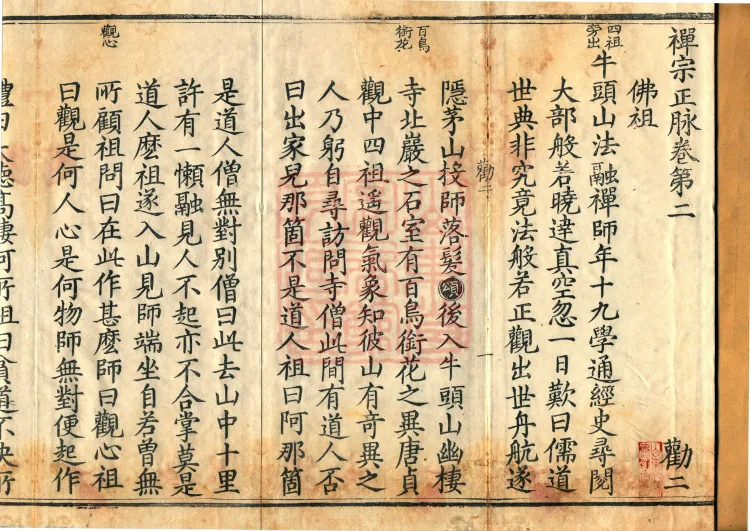 禪宗正脉卷第二 勸二
佛祖
四祖
旁出
牛頭山法融禪師年十九學通經史尋閱
大部般若曉達真空忽一日歎曰儒道
世典非究竟法般若正觀出世舟航遂
勸二 一
隱茅山投師落髮頌後入牛頭山幽棲
百鳥
銜花
寺北巖之石室有百鳥銜花之異唐貞
觀中四祖遙觀氣象知彼山有奇異之
人乃躬自尋訪問寺僧此間有道人否
曰出家兒那箇不是道人祖曰阿那箇
是道人僧無對別僧曰此去山中十里
許有一懶融見人不起亦不合掌莫是
道人麼祖遂入山見師端坐自若曾無
觀心
所顧祖問曰在此作甚麼師曰觀心祖
曰觀是何人心是何物師無對便起作
禮曰大德高棲何所祖曰貧道不決所